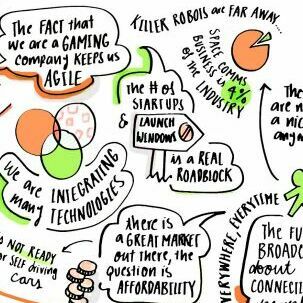 THE FACT that
we are a GAMING
company KEEPS US
AGILE
KILLER ROBOTS are FAR AWAY...
SPACE COMMS
BUSINESS is 4%
of the INDUSTRY
the # of
STARTUPS
& LAUNCH
WINDOWS
is a REAL
ROADBLOCK
We are INTEGRATING
many TECHNOLOGIES
THE
are no
a nic
any
there is
a GREAT MARKET
out there, the
question is
AFFORDABILITY
IS NOT READY
for SELF driving
cars
EVERYWHERE, EVERYTIME
THE FU
BROADC
about
CONNECTI